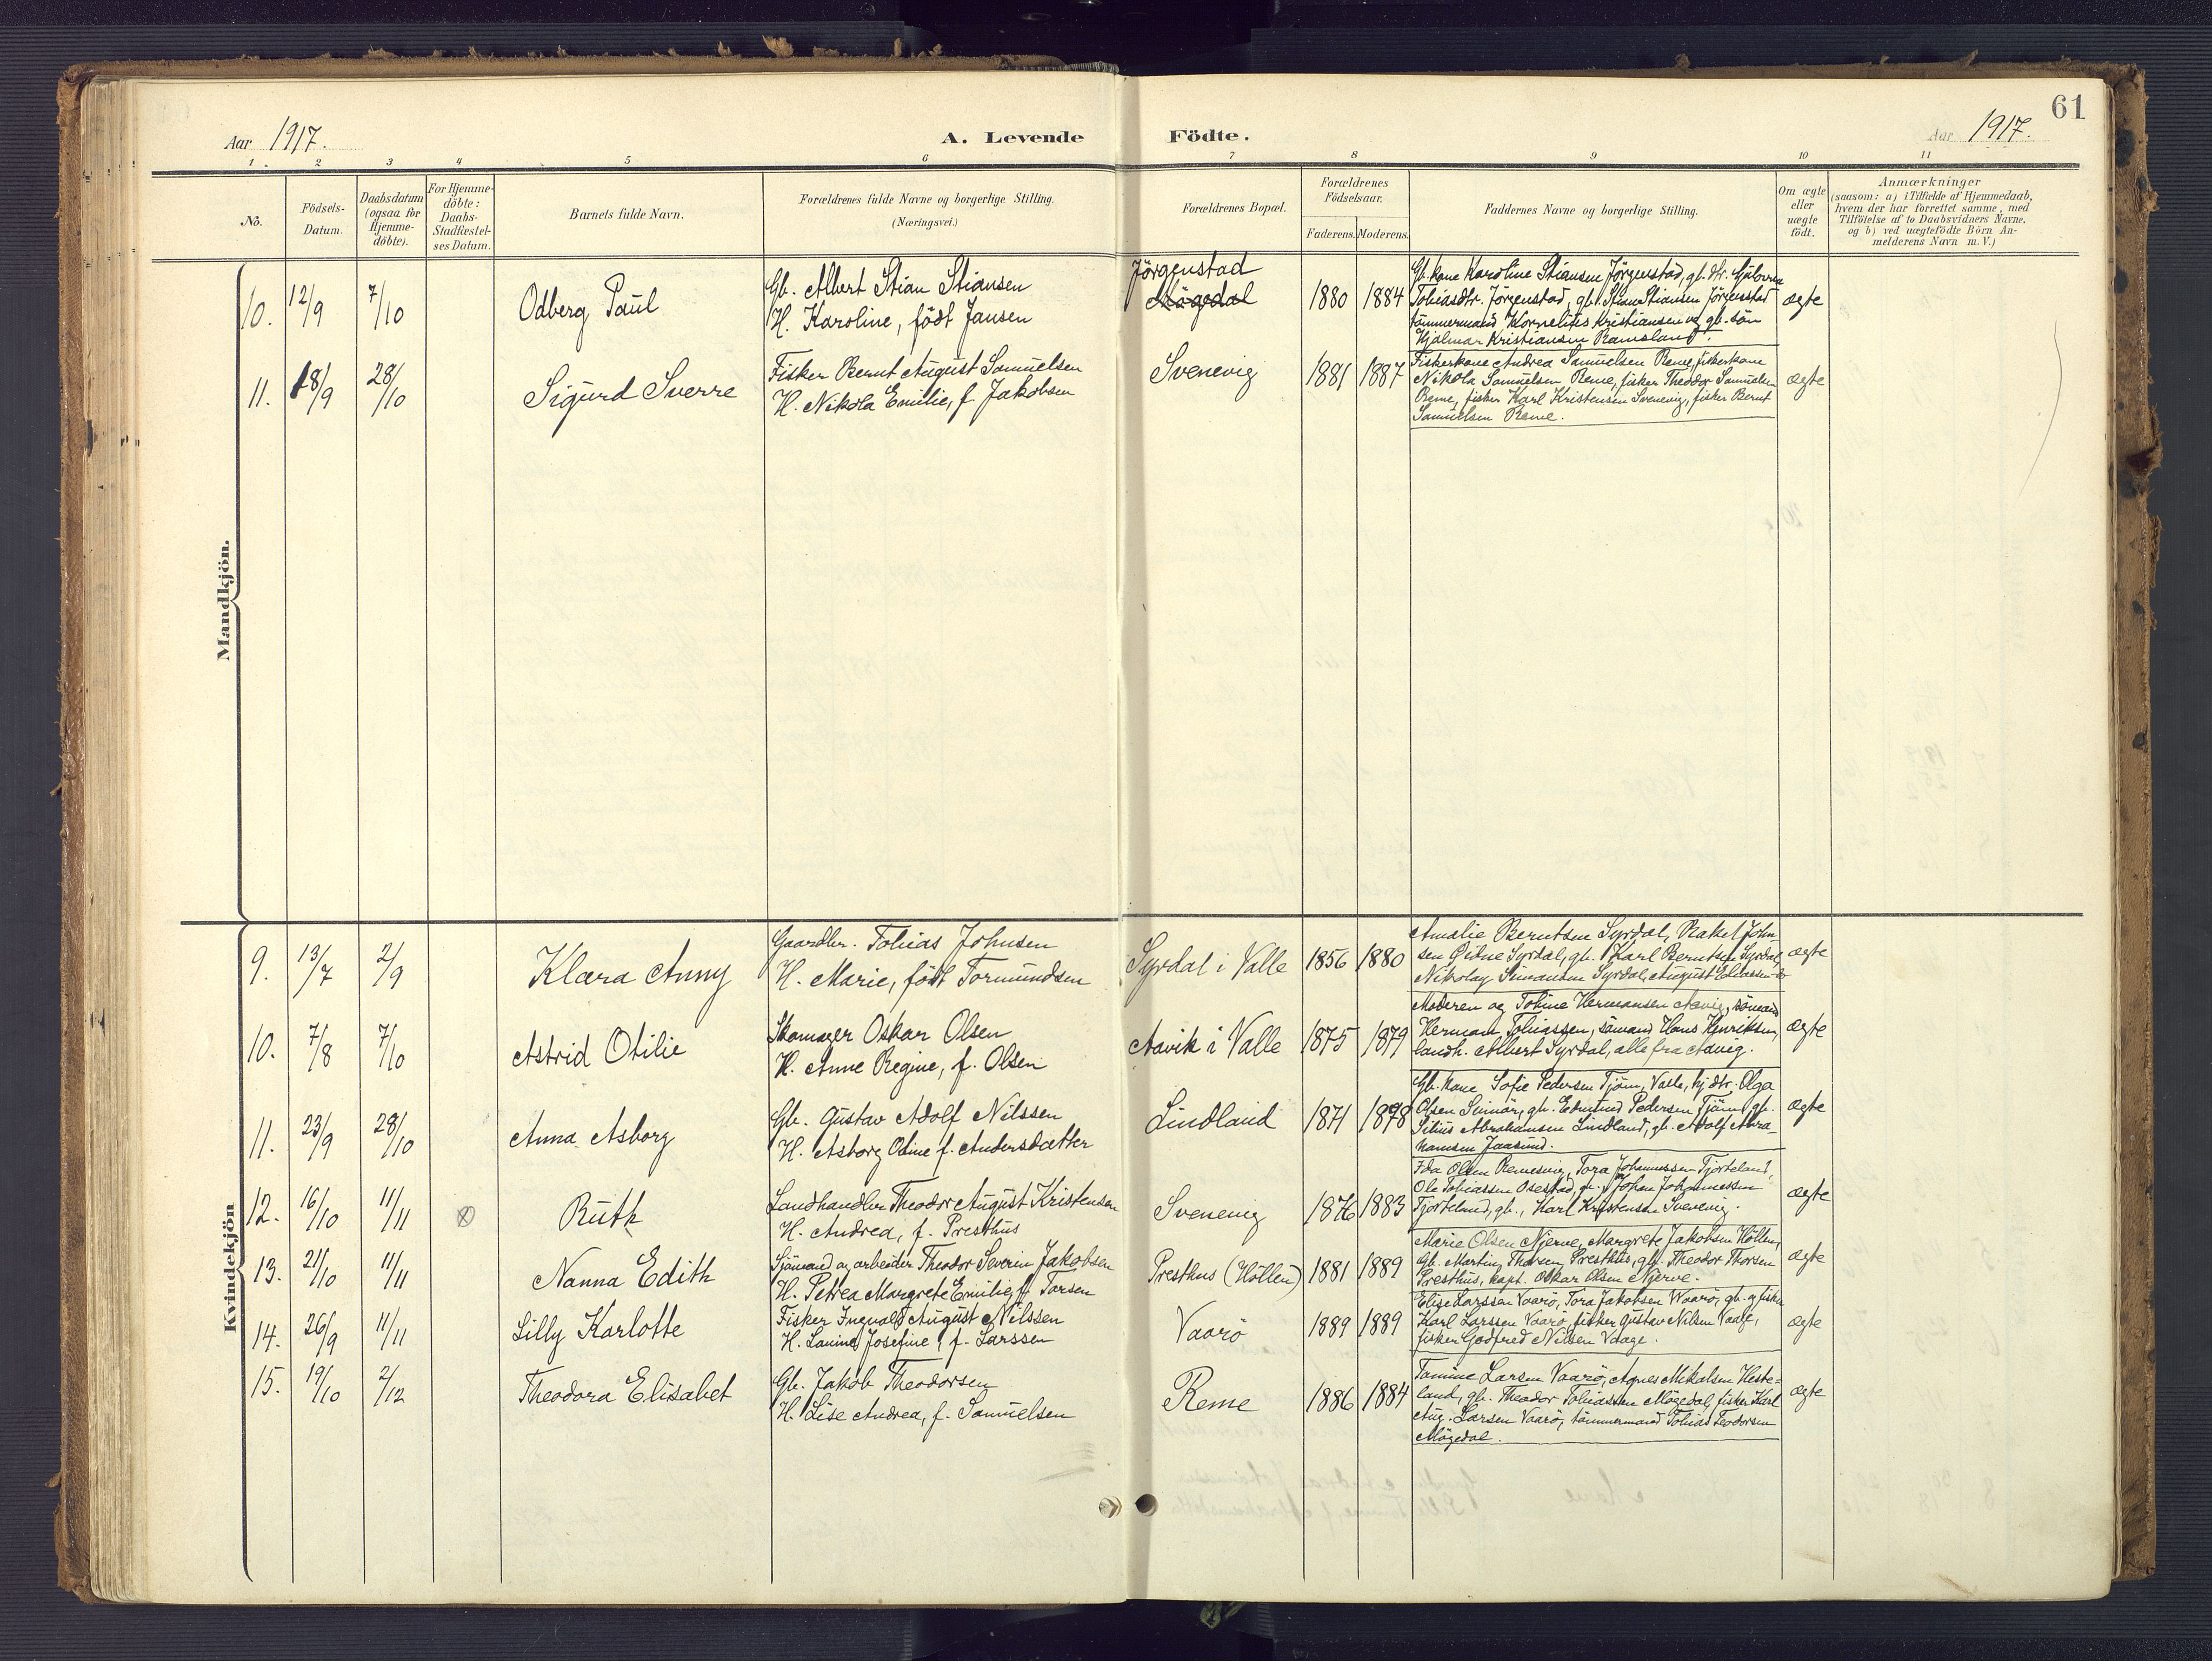 61
Aar 1917.
A. Levende Födte.
Aar 1917.
1 2 3 4 5 6 7 8 9 10 11
No.
Födsels-
Datum.
Daabsdatum
(ogsaa for
Hjemme-
döbte).
For Hjemme-
döbte:
Daabs-
Stadfæstel-
ses Datum.
Barnets fulde Navn.
Forældrenes fulde Navne og borgerlige Stilling.
(Næringsvei.)
Forældrenes Bopæl.
Forældrenes
Födselsaar.
Faderens. Moderens.
Faddernes Navne og borgerlige Stilling.
Om ægte
eller
uægte
födt.
Anmærkninger
(saasom: a) i Tilfælde af Hjemmedaab,
hvem der har forrettet samme, med
Tilföielse af to Daabsvidners Navne,
og b) ved uægtefödte Börn An-
melderens Navn m. V.)
Mandkjön.
10. 12/9 7/10 Odberg Paul
Gb. Albert Stian Stiansen
H. Karoline, födt Jansen
Jörgenstad
Mögedal
1880 1884
Gb. kone Karoline Stiansen Jörgenstad, gb. dtr.
Tobiasdtr. Jörgenstad, gb. Stian Stiansen Jörgenstad
tömmermand Kornelius Kristiansen og gb. sön
Hjalmar Kristiansen Ramsland.
ægte
11. 18/9 28/10 Sigurd Sverre
Fisker Bernt August Samuelsen
H. Nikola Emilie, f. Jakobsen
Svenevig
1881 1887
Fiskerkone Andrea Samuelsen Reme, fiskerkone
Nikola Samuelsen Reme, fisker Theodor Samuelsen
Reme, fisker Karl Kristensen Svenevig, fisker Bernt
Samuelsen Reme.
ægte
Kvindekjön
9. 13/7 2/9 Klara Anny
Gaardbr. Tobias Johnsen
H. Marie, födt Tormundsen
Syrdal i Valle
1856 1880
Amalie Berntsen Syrdal, Rakel John
sen Öidne Syrdal, gb. Karl Berntsen Syrdal,
Nikolay Simonsen Syrdal, August
ægte
10. 7/8 7/10 Astrid Otilie
Skomager Oskar Olsen
H. Anne Regine, f. Olsen
Aavik i Valle
1875 1879
Moderen og Tobine Hermansen Aavig, sömand
Herman Tobiassen, sömand Hans Henriksen,
landh. Albert Syrdal, alle fra Aavig.
ægte
11. 23/9 28/10 Anna Asborg
Gb. Gustav Adolf Nilssen
H. Asborg Oline f. Andersdatter
Lindland
1871 1878
Gb. kone Sofie Pedersen Tjöm, Valle, hj. dtr. Olga
Olsen Sinnör, gb. Edmund Pedersen Tjöm, gb.
Silius Abrahamsen Lindland, gb. Adolf Abra-
hamsen Jaasund.
ægte
12. 16/10 11/11 Ruth
Landhandler Theodor August Kristensen
H. Andrea, f. Presthus
Svenevig
1876 1883
Ida Olsen Remesvig, Tora Johannessen Tjörteland,
Ole Tobiassen Osestad, gb. Johan Johannessen
Tjörteland, gb., Karl Kristensen Svenevig.
ægte
13. 21/10 11/11 Nanna Edith
Sjömand og arbeider Theodor Severin Jakobsen
H. Petrea Margrete Emilie, f. Torsen
Presthus (Höllen)
1881 1889
Marie Olsen Njerve, Margrete Jakobsen Höllen,
Gb. Martin Thorsen Presthus, gb. Theodor Thorsen
Presthus, kapt. Oskar Olsen Njerve.
ægte
14. 26/9 11/11 Lilly Karlotte
Fisker Ingvald August Nilssen
H. Josefine, f. Larssen
Vaarö
1889 1889
Elise Larssen Vaarö, Tora Jakobsen Waarö, gb. og fisker
Karl Larssen Vaarö, fisker Gustav Nilsen Vaage,
fisker Godfred Nilsen Vaage.
ægte
15. 19/10 2/12 Theodora Elisabet
Gb. Jakob Theodorsen
H. Lise Andrea, f. Samuelsen
Reme
1886 1884
Tomine Larsen Vaarö, Agnes Mikalsen Heste-
land, gb. Theodor Tobiassen Mögedal, fisker Karl
Aug. Larsen Vaarö, tömmermand Tobias Teodorsen
Mögedal.
ægte